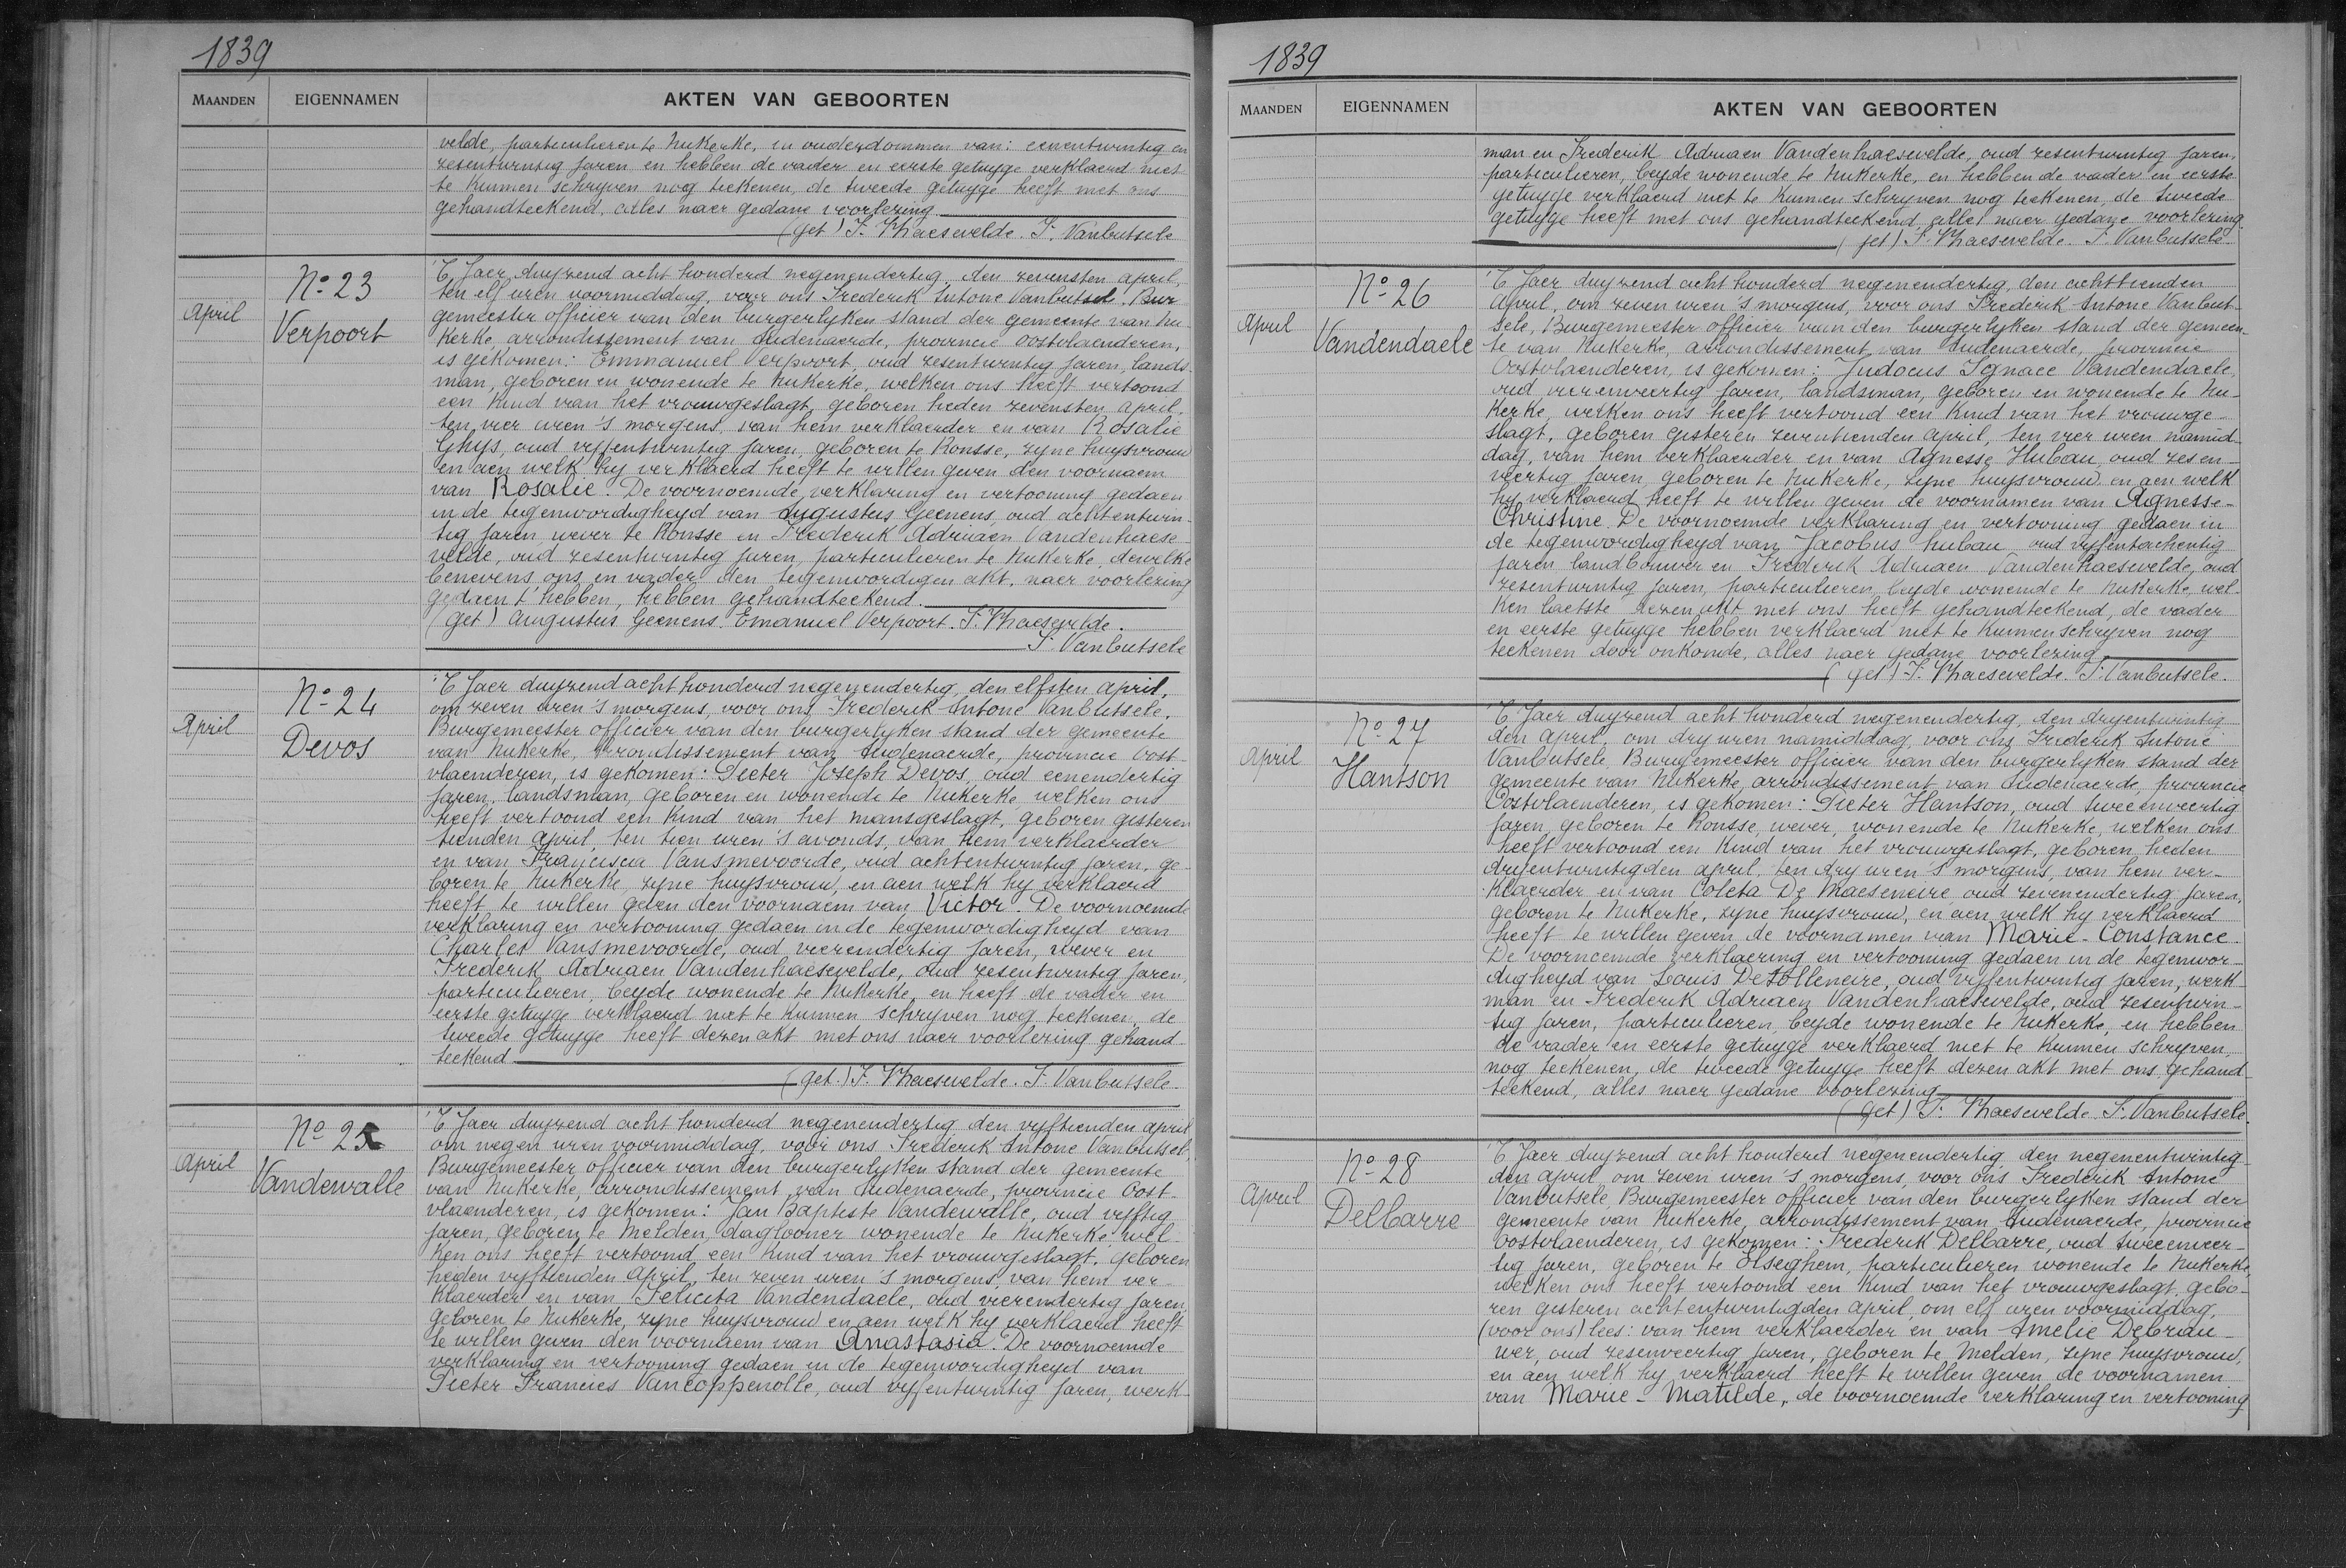 1839
MAANDEN EIGENNAMEN AKTEN VAN GEBOORTEN
velde, particulieren te Nukerke, in ouderdommen van: eenentwintig en
zesentwintig jaren, en hebben de vader en eerste getuyge verklaerd niet
te kunnen schryven nog teekenen, de tweede getuyge heeft met ons
gehandteekend. Alles naer gedane voorlezing.
(get) F. Vhaesevelde. F. Vanbutsele
April
Nº 23
Verpoort
'T Jaer duyzend acht honderd negenendertig, den zevensten April,
ten elf uren voormiddag, voor ons Frederik Antone Vanbutsel, Bur
gemeester officier van den burgerlyken stand der gemeente van Nu-
kerke, arrondissement van Audenaerde, provincie Oostvlaenderen,
is gekomen: Emmanuel Verpoort, oud zesentwintig jaren, lands-
man, geboren en wonende te Nukerke, welken ons heeft vertoond
een kind van het vrouwgeslagt, geboren heden zevensten April,
ten vier uren 's morgens, van hem verklaerder en van Rosalie
Ghys, oud vyfentwintig jaren, geboren te Ronsse, zyne huysvrouw
en aen welk hy verklaerd heeft te willen geven den voornaem
van Rosalie. De voornoemde verklaring en vertooning gedaen
in de tegenwordigheyd van Augustus Geenens, oud achtentwin-
tig jaren, wever te Ronsse en Frederik Adriaen Vandenhaese-
velde, oud zesentwintig jaren, particulieren te Nukerke, dewelke
benevens ons en vader den tegenwordigen akt, naer voorlezing
gedaen t' hebben, hebben gehandteekend.
(get) Augustus Geenens. Emanuel Verpoort. F. Vhaesevelde.
F. Vanbutsele
April
Nº 24
Devos
'T Jaer duyzend acht honderd negenendertig, den elfsten April,
om zeven uren 's morgens, voor ons Frederik Antone Vanbutsele,
Burgemeester officier van den burgerlyken stand der gemeente
van Nukerke, arrondissement van Audenaerde, provincie Oost-
vlaenderen, is gekomen: Pieter Joseph Devos, oud eenendertig
jaren, landsman, geboren en wonende te Nukerke, welken ons
heeft vertoond een kind van het mansgeslagt, geboren gisteren
tienden April, ten tien uren 's avonds, van hem verklaerder
en van Francisca Vansmevoorde, oud achtentwintig jaren, ge-
boren te Nukerke, zyne huysvrouw, en aen welk hy verklaerd
heeft te willen geven den voornaem van Victor. De voornoemde
verklaring en vertooning gedaen in de tegenwordigheyd van
Charles Vansmevoorde, oud vierendertig jaren, wever en
Frederik Adriaen Vandenhaesevelde, oud zesentwintig jaren,
particulieren, beyde wonende te Nukerke, en heeft de vader en
eerste getuyge verklaerd niet te kunnen schryven nog teekenen, de
tweede getuyge heeft dezen akt met ons naer voorlezing gehand
teekend
(get.) F. Vhaesevelde. F. Vanbutsele.
April
Nº 25
Vandewalle
'T Jaer duyzend acht honderd negenendertig den vyftienden April
om negen uren voormiddag, voor ons Frederik Antone Vanbutsel,
Burgemeester officier van den burgerlyken stand der gemeente
van Nukerke, arrondissement van Audenaerde, provincie Oost-
vlaenderen, is gekomen: Jan Baptiste Vandewalle, oud vyftig
jaren, geboren te Melden, daglooner wonende te Nukerke, wel-
ken ons heeft vertoond een kind van het vrouwgeslagt, geboren
heden vyftienden April, ten zeven uren 's morgens, van hem ver-
klaerder en van Felicita Vandendaele, oud vierendertig jaren,
geboren te Nukerke, zyne huysvrouw en aen welk hy verklaerd heeft
te willen geven den voornaem van Anastasia. De voornoemde
verklaring en vertooning gedaen in de tegenwordigheyd van
Pieter Francies Vancoppenolle, oud vyfentwintig jaren, werk-
1839
MAANDEN EIGENNAMEN AKTEN VAN GEBOORTEN
man en Frederik Adriaen Vandenhaesevelde, oud zesentwintig jaren,
particulieren, beyde wonende te Nukerke, en hebben de vader en eerste
getuyge verklaerd niet te kunnen schryven nog teekenen, de tweede
getuyge heeft met ons gehandteekend, alles naer gedane voorlezing.
(get) F. Vhaesevelde. F. Vanbutsele
April
Nº 26
Vandendaele
'T Jaer duyzend acht honderd negenendertig, den achttienden
April, om zeven uren 's morgens, voor ons Frederik Antone Vanbut-
sele, Burgemeester officier van den burgerlyken stand der gemeen-
te van Nukerke, arrondissement van Audenaerde, provincie
Oostvlaenderen, is gekomen: Judocus Ignace Vandendaele,
oud vierenveertig jaren, landsman, geboren en wonende te Nu-
kerke, welken ons heeft vertoond een kind van het vrouwge-
slagt, geboren gisteren zeventienden April, ten vier uren namid-
dag, van hem verklaerder en van Agnesse Hubau, oud zesen-
veertig jaren, geboren te Nukerke, zyne huysvrouw, en aen welk
hy verklaerd heeft te willen geven de voornamen van Agnesse-
Christine. De voornoemde verklaring en vertooning gedaen in
de tegenwordigheyd van Jacobus Hubau oud vyfentachentig
jaren landbouwer en Frederik Adriaen Vandenhaesevelde, oud
zesentwintig jaren, particulieren, beyde wonende te Nukerke, wel-
ken laetste dezen akt met ons heeft gehandteekend, de vader
en eerste getuyge hebben verklaerd niet te kunnen schryven nog
teekenen door onkonde, alles naer gedane voorlezing
(get) F. Vhaesevelde. F. Vanbutsele.
April
Nº 27
Hantson
'T Jaer duyzend acht honderd negenendertig, den dryentwintig
den April, om dry uren namiddag, voor ons Frederik Antone
Vanbutsele, Burgemeester officier van den burgerlyken stand der
gemeente van Nukerke, arrondissement van Audenaerde, provincie
Oostvlaenderen, is gekomen: Pieter Hantson, oud tweeenveertig
jaren, geboren te Ronsse, wever, wonende te Nukerke, welken ons
heeft vertoond een kind van het vrouwgeslagt, geboren heden
dryentwintigden April, ten dry uren 's morgens, van hem ver-
klaerder en van Coleta De Maeseneire oud zevenendertig jaren,
geboren te Nukerke, zyne huysvrouw, en aen welk hy verklaerd
heeft te willen geven de voornamen van Marie-Constance.
De voornoemde verklaering en vertooning gedaen in de tegenwor-
digheyd van Louis Detolleneire, oud vyfentwintig jaren, werk-
man en Frederik Adriaen Vandenhaesevelde, oud zesentwin-
tig jaren, particulieren, beyde wonende te Nukerke, en hebben
de vader en eerste getuyge verklaerd niet te kunnen schryven,
nog teekenen, de tweede getuyge heeft dezen akt met ons gehand-
teekend, alles naer gedane voorlezing
(get) F. Vhaesevelde F. Vanbutsele.
April
Nº 28
Delbarre
'T Jaer duyzend acht honderd negenendertig, den negenentwintig-
den April om zeven uren 's morgens, voor ons Frederik Antone
Vanbutsele, Burgemeester officier van den burgerlyken stand der
gemeente van Nukerke, arrondissement van Audenaerde, provincie
Oostvlaenderen, is gekomen: Frederik Delbarre, oud tweeenveer-
tig jaren, geboren te Elseghem, particulieren wonende te Nukerke,
welken ons heeft vertoond een kind van het vrouwgeslagt, gebo-
ren gisteren achtentwintigden April, om elf uren voormiddag,
(voor ons) lees: van hem verklaerder en van Amelie Debrau-
wer, oud zesenveertig jaren, geboren te Melden, zyne huysvrouw,
en aen welk hy verklaerd heeft te willen geven de voornamen
van Marie-Matilde, de voornoemde verklaring en vertooning